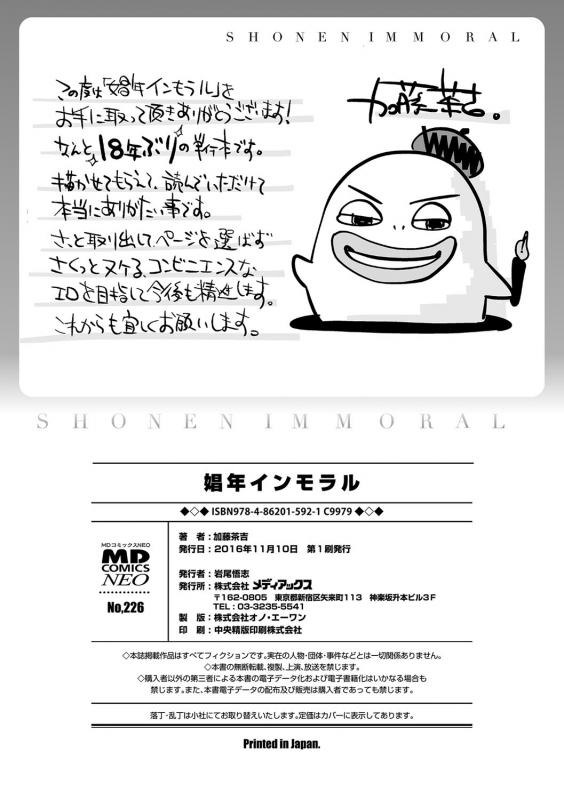 SHONEN IMMORAL
この度は「娼年インモラル」を
お手に取って頂きありがとうございます!
なんと18年ぶりの単行本です。
描かせてもらえて、読んでいただけて
本当にありがたい事です。
さっと取り出して、ページを選ばず
さくっとヌケる、コンビニエンスな
エロを目指して今後も精進します。
これからも宜しくお願いします。
加藤茶吉。
SHONEN IMMORAL
娼年インモラル
◆◇◆ ISBN978-4-86201-592-1 C9979 ◆◇◆
MDコミックスNEO
MD
COMICS
NEO
No,226
著 者:加藤茶吉
発行日:2016年11月10日 第1刷発行
発行者:岩尾悟志
発行所:株式会社 メディアックス
〒162-0805 東京都新宿区矢来町113 神楽坂升本ビル3F
TEL:03-3235-5541
製 版:株式会社オノ・エーワン
印 刷:中央精版印刷株式会社
◇本誌掲載作品はすべてフィクションです。実在の人物・団体・事件などとは一切関係ありません。
◇本書の無断転載、複製、上演、放送を禁じます。
◇購入者以外の第三者による本書の電子データ化および電子書籍化はいかなる場合も
禁じます。また、本書電子データの配布及び販売は購入者であっても禁じます。
落丁・乱丁は小社にてお取り替えいたします。定価はカバーに表示してあります。
Printed in Japan.